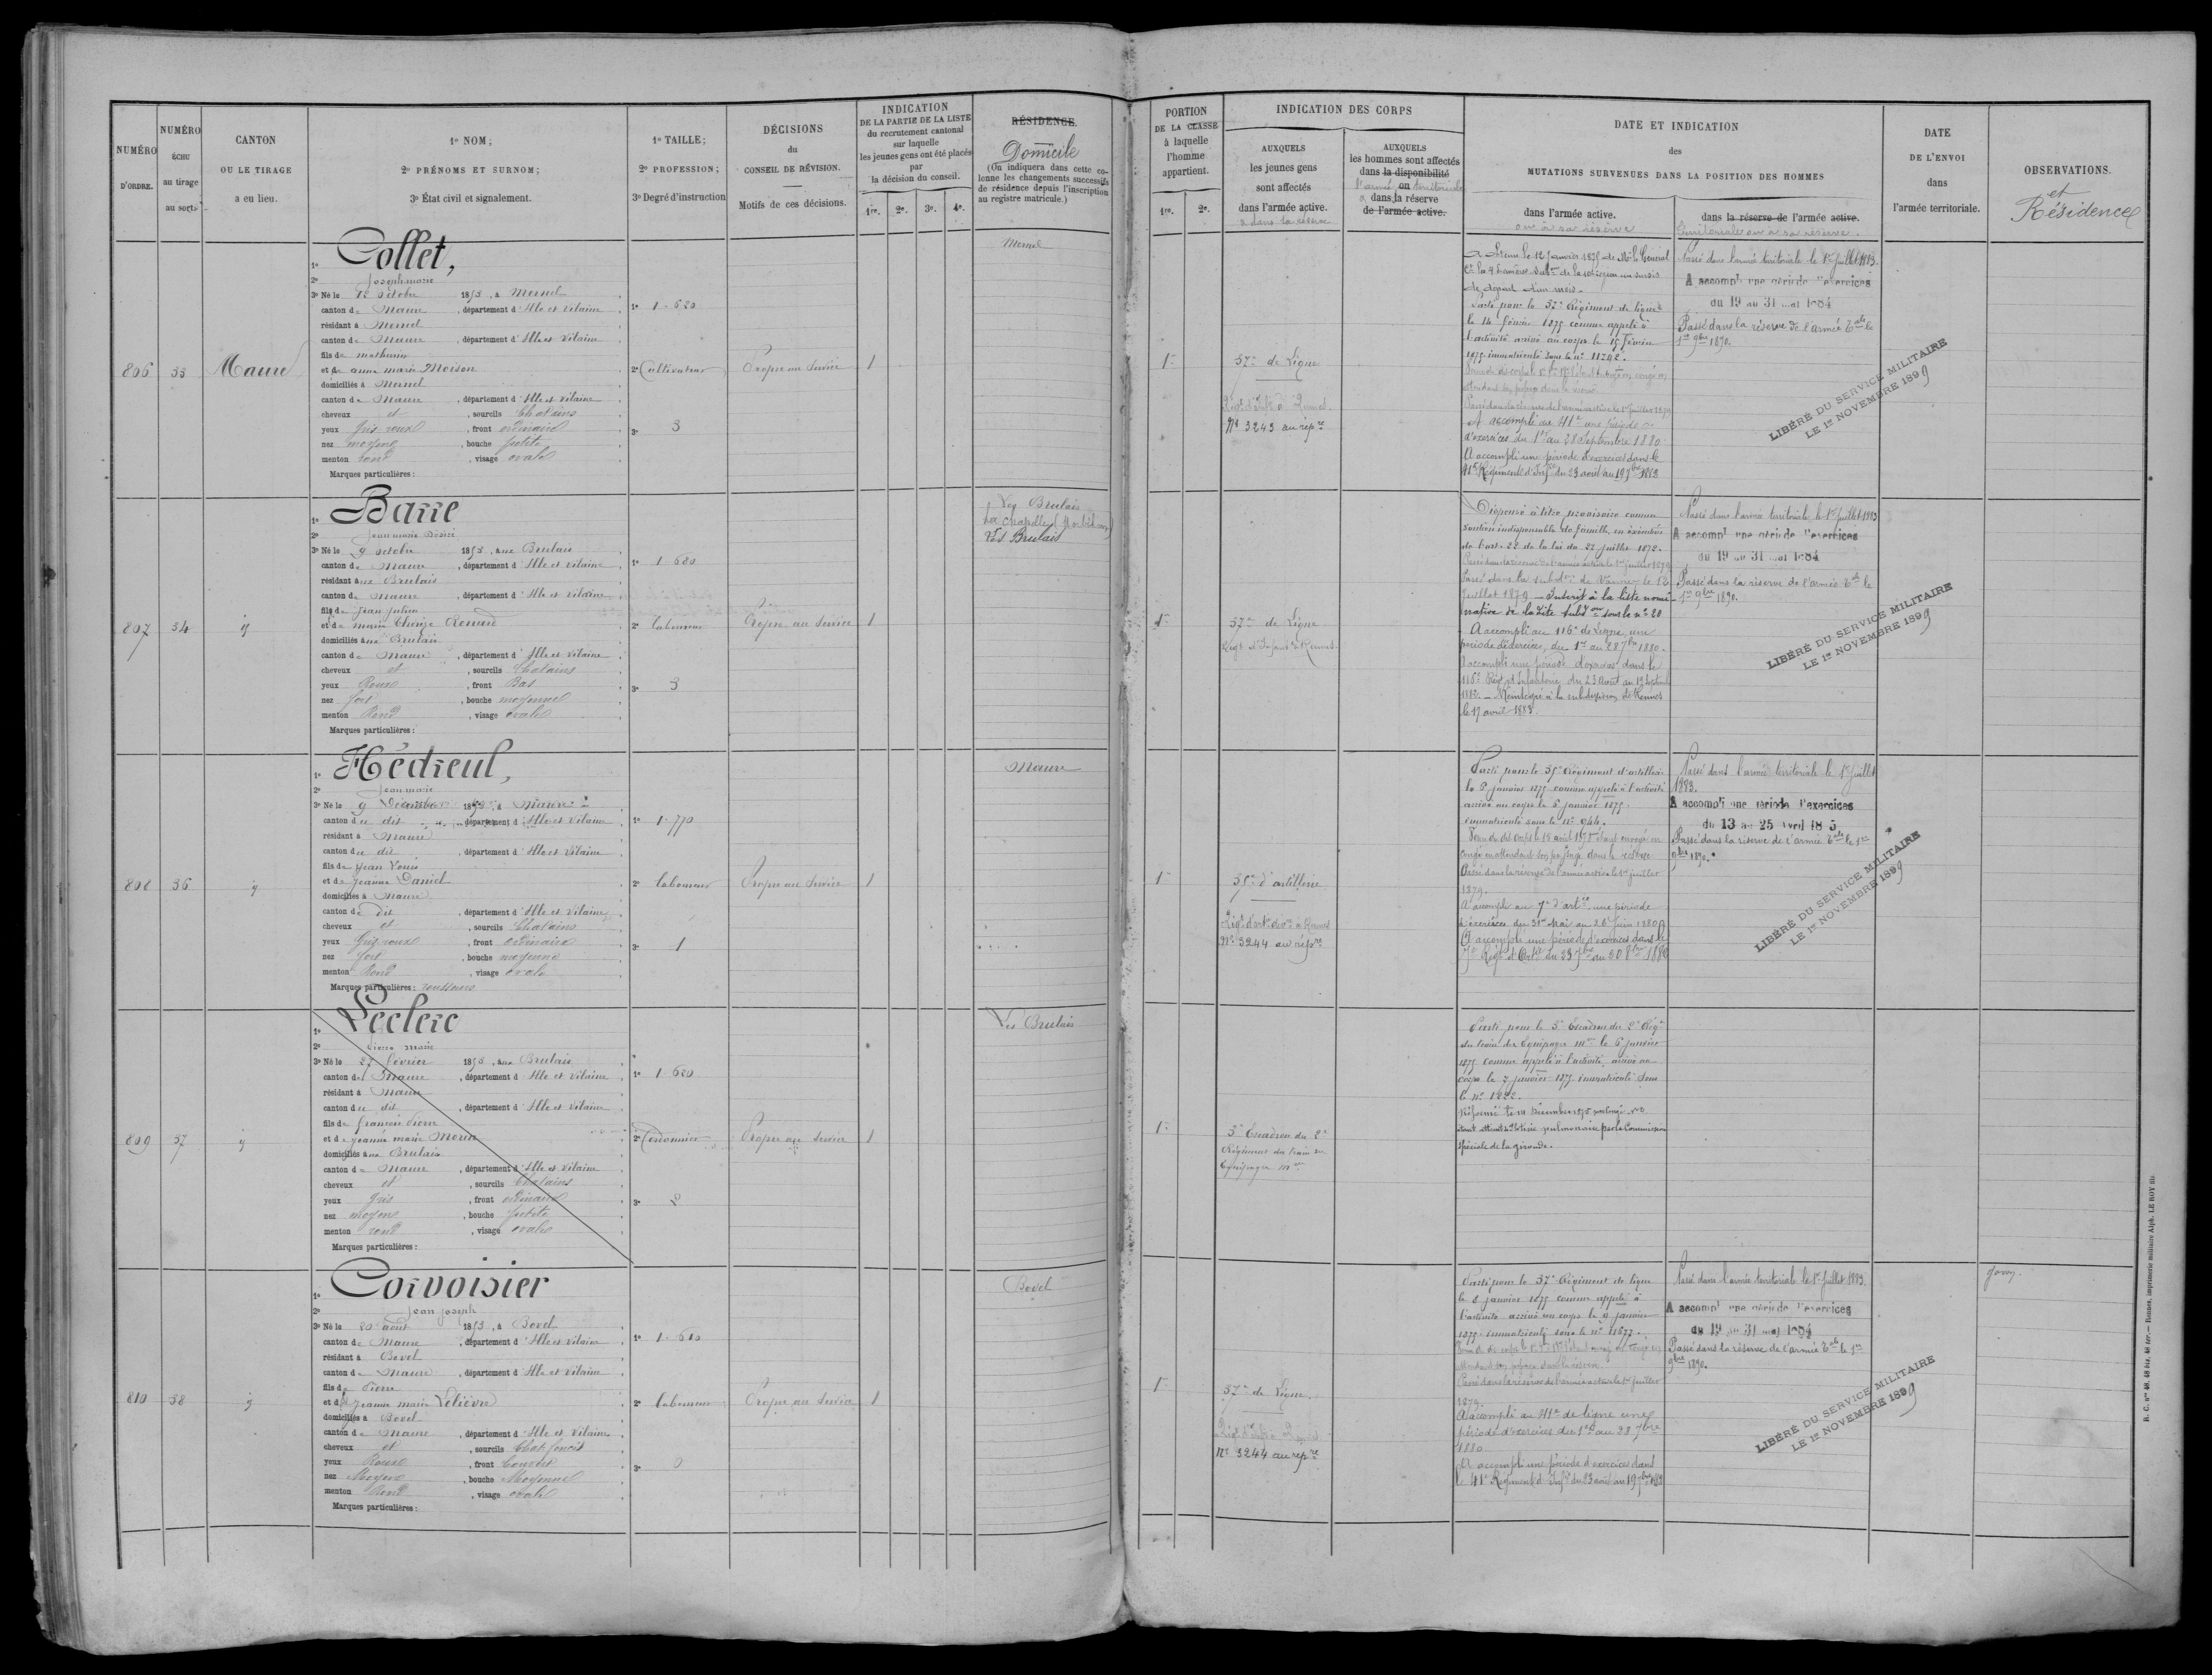 NUMÉRO
D'ORDRE.
NUMÉRO
ÉCHU
au tirage
au sort.
CANTON
OU LE TIRAGE
a eu lieu.
1º NOM;
2º PRÉNOMS ET SURNOM;
3º État civil et signalement.
1º TAILLE;
2º PROFESSION;
3º Degré d'instruction
DÉCISIONS
du
CONSEIL DE RÉVISION.
Motifs de ces décisions.
INDICATION
DE LA PARTIE DE LA LISTE
du recrutement cantonal
sur laquelle
les jeunes gens ont été placés
par
la décision du conseil.
1re. 2e. 3e. 4e.
RÉSIDENCE
Domicile
(On indiquera dans cette co-
lonne les changements successifs
de résidence depuis l'inscription
au registre matricule.)
PORTION
DE LA CLASSE
à laquelle
l'homme
appartient.
1re. 2e.
INDICATION DES CORPS
AUXQUELS
les jeunes gens
sont affectés
dans l'armée active.
AUXQUELS
les hommes sont affectés
dans la disponibilité
ou
dans la réserve
de l'armée active.
DATE ET INDICATION
des
MUTATIONS SURVENUES DANS LA POSITION DES HOMMES
dans l'armée active.
ou à sa réserve
dans la réserve de l'armée active.
territoriale ou à sa réserve.
DATE
DE L'ENVOI
dans
l'armée territoriale.
OBSERVATIONS.
et
Résidence
806
33
Maure
1º Collet,
2º Joseph marie
3º Né le 12 octobre 1853, à Mernel
canton de Maure, département d'Ille et Vilaine
résidant à Mernel
canton de Maure, département d'Ille et Vilaine
fils de mathurin
et de anne marie Moison
domiciliés à Mernel
canton de Maure, département d'Ille et Vilaine
cheveux et, sourcils Chatains
yeux Gris roux, front ordinaire
nez moyen, bouche petite
menton rond, visage ovale
Marques particulières:
1º 1.620
2º Cultivateur
3º 3
Propre au Service
1
Mernel
1re
37e de Ligne
Nº 3243 au répre
de départ d'un mois.
Parti pour le 37e Régiment de ligne
le 14 février 1875 comme appelé à
l'activité arrivé au corps le 15 février
1875 immatriculé sous le nº 11242.
A accompli au 41e une période
d'exercices du 1er au 28 Septembre 1880
A accompli une période d'exercices dans le
41e Régiment d'Infie du 23 août au 19 7bre 1883
Passé dans l'armée territoriale le 1er Juillet 1883.
A accompli une période d'exercices
du 19 au 31 mai 1884
Passé dans la réserve de l'armée Tale le
1er 9bre 1890.
LIBÉRÉ DU SERVICE MILITAIRE
LE 1er NOVEMBRE 1899
807
34
y
1º Barre
2º Jean marie Désiré
3º Né le 9 octobre 1853, aux Brulais
canton de Maure, département d'Ille et Vilaine
résidant aux Brulais
canton de Maure, département d'Ille et Vilaine
fils de Jean Julien
et de marie Thérèse Renard
domiciliés aux Brulais
canton de Maure, département d'Ille et Vilaine
cheveux et, sourcils Chatains
yeux Roux, front Bas
nez fort, bouche moyenne
menton Rond, visage ovale
Marques particulières:
1º 1.680
2º Laboureur
3º 3
Propre au Service
1
Les Brulais
La Chapelle (Morbihan)
Les Brulais
1re
37e de Ligne
Régt d'Infant. de Rennes
Dispensé à titre provisoire comme
soutien indispensable de famille, en exécution
de l'art. 22 de la loi du 27 juillet 1872.
Passé dans la réserve de l'armée active le 1er juillet 1879
Passé dans la subdon de Vannes le 12
Juillet 1879 – Inscrit à la liste nomi-
native de la dite subdon sous le nº 20
A accompli au 116e de Ligne, une
période d'exercices, du 1er au 28 7bre 1880.
A accompli une période d'exercices dans le
116e Régt d'Infanterie du 23 Août au 19 Septembre
1882 – Réintégré à la subdivision de Rennes
le 17 avril 1883.
Passé dans l'armée territoriale le 1er Juillet 1883
A accompli une période d'exercices
du 19 au 31 mai 1884
Passé dans la réserve de l'armée Tale le
1er 9bre 1890.
LIBÉRÉ DU SERVICE MILITAIRE
LE 1er NOVEMBRE 1899
808
36
y
1º Hédreul,
2º Jean marie
3º Né le 9 Décembre 1853, à Maure
canton du dit, département d'Ille et Vilaine
résidant à Maure
canton du dit, département d'Ille et Vilaine
fils de Jean Louis
et de Jeanne Daniel
domiciliés à Maure
canton du dit, département d'Ille et Vilaine
cheveux et, sourcils Chatains
yeux Gris roux, front ordinaire
nez fort, bouche moyenne
menton Rond, visage ovale
Marques particulières: rousseurs
1º 1.770
2º Laboureur
3º 1
Propre au Service
1
Maure
1re
35e d'artillerie
Nº 3244 au répre
Parti pour le 35e Régiment d'artillerie
le 5 janvier 1875 comme appelé à l'activité
arrivé au corps le 6 janvier 1875.
immatriculé sous le nº 944.
Passé dans la réserve de l'armée active le 1er juillet
1879.
A accompli au 7e d'artie une période
d'exercices du 31 Mai au 26 Juin 1880
A accompli une période d'exercices dans le
7e Régt d'Artie du 23 7bre au 20 8bre 1886
Passé dans l'armée territoriale le 1er Juillet
1883.
A accompli une période d'exercices
du 13 au 25 Avril 1885
Passé dans la réserve de l'armée Tale le 1er
9bre 1890.
LIBÉRÉ DU SERVICE MILITAIRE
LE 1er NOVEMBRE 1899
809
37
y
1º Leclerc
2º Pierre marie
3º Né le 27 février 1853, aux Brulais
canton de Maure, département d'Ille et Vilaine
résidant à Maure
canton du dit, département d'Ille et Vilaine
fils de françois Pierre
et de jeanne marie Morin
domiciliés aux Brulais
canton de Maure, département d'Ille et Vilaine
cheveux et, sourcils Chatains
yeux Gris, front ordinaire
nez moyen, bouche petite
menton rond, visage ovale
Marques particulières:
1º 1.620
2º Cordonnier
3º 2
Propre au Service
1
Les Brulais
1re
3e Escadron du 2e
Régiment du train des
Equipages mres
Parti pour le 3e Escadron du 2e Régt
du train des Equipages mres le 6 janvier
1875 comme appelé à l'activité, arrivé au
corps le 7 janvier 1875 immatriculé sous
le nº 1222.
étant atteint de Phtisie pulmonaire par la Commission
spéciale de la gironde.
810
38
y
1º Corvoisier
2º Jean Joseph
3º Né le 20 août 1853, à Bovel
canton de Maure, département d'Ille et Vilaine
résidant à Bovel
canton de Maure, département d'Ille et Vilaine
fils de Pierre
et de Jeanne marie Lelièvre
domiciliés à Bovel
canton de Maure, département d'Ille et Vilaine
cheveux et, sourcils Chat. foncés
yeux Roux, front Couvert
nez Moyen, bouche Moyenne
menton Rond, visage ovale
Marques particulières:
1º 1.610
2º Laboureur
3º 0
Propre au Service
1
Bovel
1re
37e de Ligne.
Nº 3244 au répre
Parti pour le 37e Régiment de ligne
le 8 janvier 1875 comme appelé à
l'activité arrivé au corps le 9 janvier
1875. immatriculé sous le nº 11677.
Passé dans la réserve de l'armée active le 1er juillet
1879.
A accompli au 41e de ligne une
période d'exercices du 1er au 28 7bre
1880
A accompli une période d'exercices dans
le 41e Régiment d'Infie du 23 août au 19 7bre 1883
Passé dans l'armée territoriale le 1er Juillet 1883.
A accompli une période d'exercices
du 19 au 31 mai 1884
Passé dans la réserve de l'armée Tale le 1er
9bre 1890.
LIBÉRÉ DU SERVICE MILITAIRE
LE 1er NOVEMBRE 1899
R. C. nos 48, 48 bis, 48 ter. — Rennes, imprimerie militaire Alph. LE ROY fils